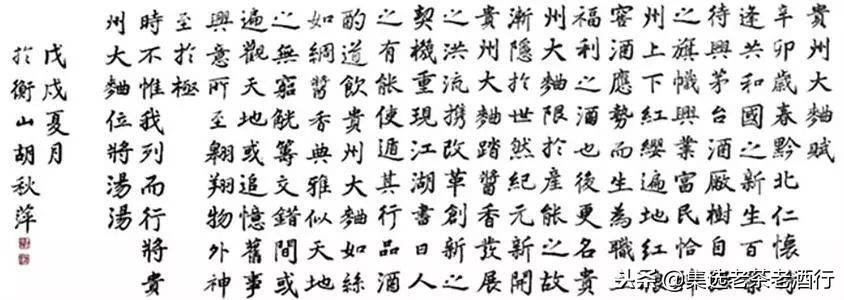 貴州大麯賦
辛卯歲春黔北仁懷
逢共和國之新生百
待興茅台酒厰樹自
之旗幟興業富民恰
州上下紅纓遍地紅
窖酒應勢而生為職
福利之酒也後更名貴
州大麯限於産能之故
漸隱於世然紀元新開
貴州大麯踏醬香發展
之洪流携改革創新之
契機重現江湖書曰人
之有能使遁其行品酒
酌道飲貴州大麯如絲
如綢醬香典雅似天地
之無窮觥籌交錯間或
遍觀天地或追憶舊事
興意所至翱翔物外神
至於極
時不惟我列而行將貴
州大麯位將湯湯
戊戌夏月
於衡山胡秋萍
头条@集选老茶老酒行